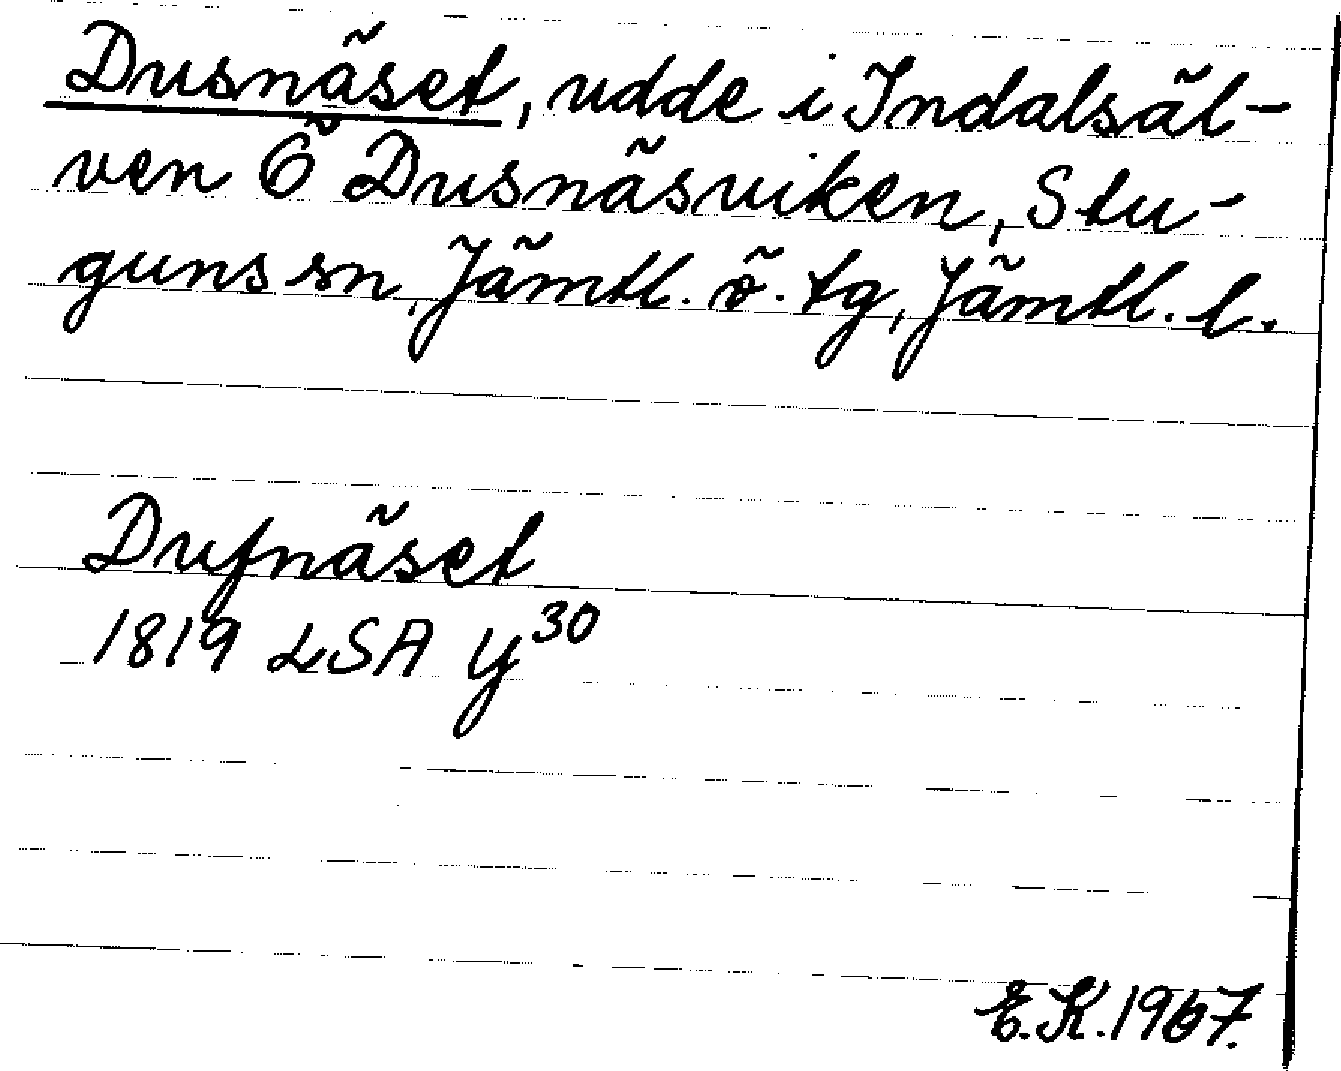 Dusnäset, udde i Indalsäl-
ven Ö Dusnäsviken, Stu-
guns sn, Jämtl. ö. tg, Jämtl. l.
Duſnäset
1819 LSA y³⁰
E.K. 1967.